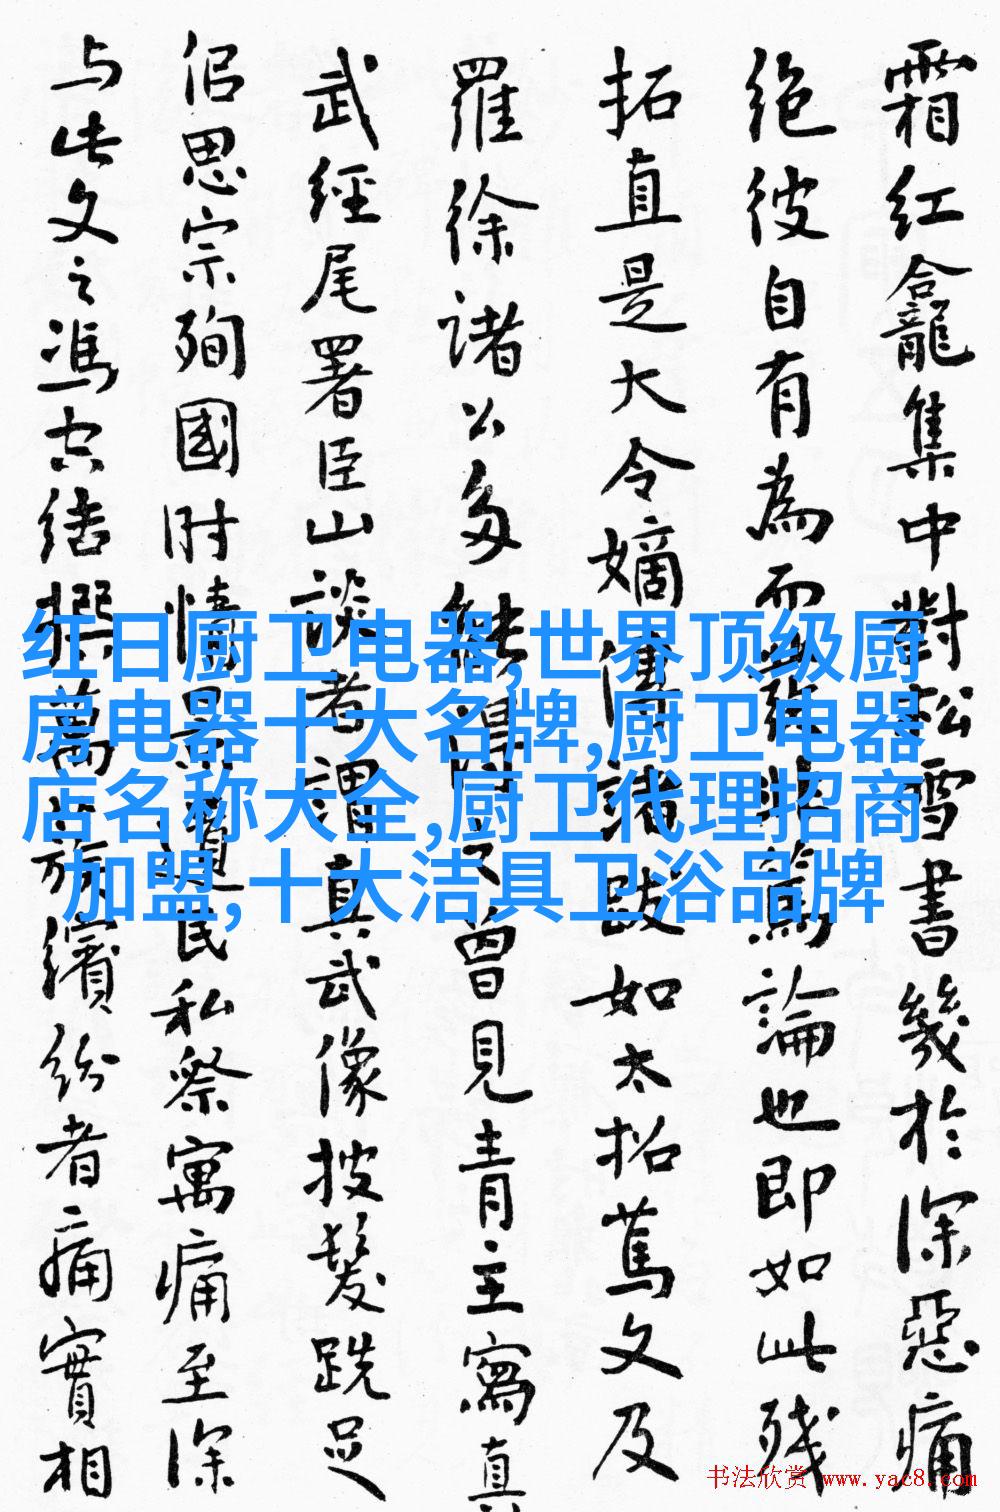 霜红龛集中對松雪書幾於深惡痛
绝彼自有為而論也即如此残
拓直是大令嫡傳諸跋如太招篤文及
羅徐諸公多能得曾見青主寫真
武經尾署臣山談者謂真武像披髮跣足
侣思宗殉國时情景遺民私察寓痛至深
与此文之馮空结撰萬族繽纷者痛實相
红日厨卫电器,世界顶级厨
房电器十大名牌,厨卫电器
店名称大全,厨卫代理招商
加盟,十大洁具卫浴品牌
书法欣赏 www.yac8.com